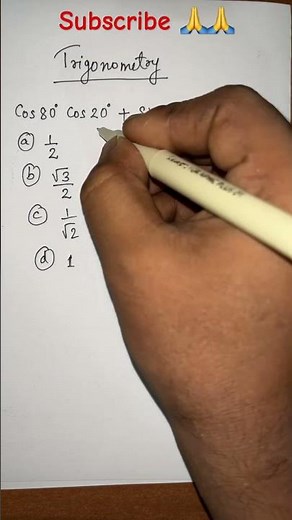 Subscribe 🙏🙏
Trigonometry
Cos 80° Cos 20° +
(a) 1/2
(b) √3/2
(c) 1/√2
(d) 1